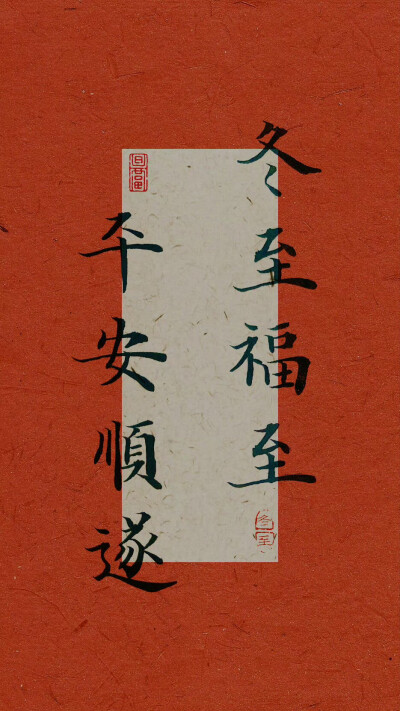 冬至福至
平安順遂
冬至